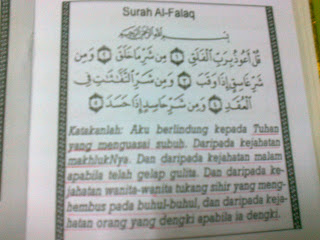 Surah Al-Falaq
بِسْمِ اللَّهِ الرَّحْمَٰنِ الرَّحِيمِ
قُلْ أَعُوذُ بِرَبِّ الْفَلَقِ ﴿١﴾ مِنْ شَرِّ مَا خَلَقَ ﴿٢﴾ وَمِنْ
شَرِّ غَاسِقٍ إِذَا وَقَبَ ﴿٣﴾ وَمِنْ شَرِّ النَّفَّاثَاتِ فِي
الْعُقَدِ ﴿٤﴾ وَمِنْ شَرِّ حَاسِدٍ إِذَا حَسَدَ ﴿٥﴾
Katakanlah: Aku berlindung kepada Tuhan
yang menguasai subuh. Daripada kejahatan
makhlukNya. Dan daripada kejahatan malam
apabila telah gelap gulita. Dan daripada ke-
jahatan wanita-wanita tukang sihir yang meng-
hembus pada buhul-buhul, dan daripada keja-
hatan orang yang dengki apabila ia dengki.